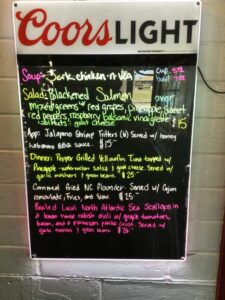 Coors LIGHT
Soup: Jerk chicken n veg cup
Salad: Blackened Salmon over
mixed greens w/ red grapes, pineapple, sweet
red peppers, raspberry balsamic vinaigrette
goat cheese $15
App: Jalapeno Shrimp Fritters (6) Served w/ honey
habanero BBQ sauce. $15
Dinner: Pepper Grilled Yellowfin Tuna topped w/
Pineapple-watermelon salsa & goat cheese. Served w/
garlic mashers & green beans. $25
Cornmeal fried NC Flounder. Served w/ Cajun
remoulade, Fries, and slaw. $25
Broiled Local North Atlantic Sea Scallops in
a lemon horse radish aioli w/ grape tomatoes,
bacon, and a parmesan panko crust. Served w/
garlic mashers & green beans. $28